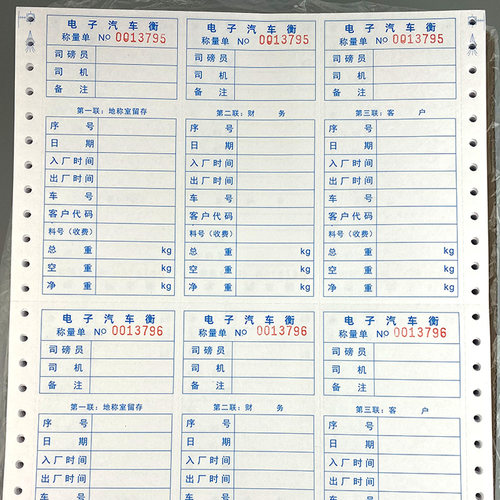 电子汽车衡 电子汽车衡 电子汽车衡
称量单 No 0013795 称量单 No 0013795 称量单 No 0013795
司磅员 司磅员 司磅员
司机 司机 司机
备注 备注 备注
第一联：地称室留存 第二联：财务 第三联：客户
序号 序号 序号
日期 日期 日期
入厂时间 入厂时间 入厂时间
出厂时间 出厂时间 出厂时间
车号 车号 车号
客户代码 客户代码 客户代码
料号（收费） 料号（收费） 料号（收费）
总重 kg 总重 kg 总重 kg
空重 kg 空重 kg 空重 kg
净重 kg 净重 kg 净重 kg
电子汽车衡 电子汽车衡 电子汽车衡
称量单 No 0013796 称量单 No 0013796 称量单 No 0013796
司磅员 司磅员 司磅员
司机 司机 司机
备注 备注 备注
第一联：地称室留存 第二联：财务 第三联：客户
序号 序号 序号
日期 日期 日期
入厂时间 入厂时间 入厂时间
出厂时间 出厂时间 出厂时间
车号 车号 车号